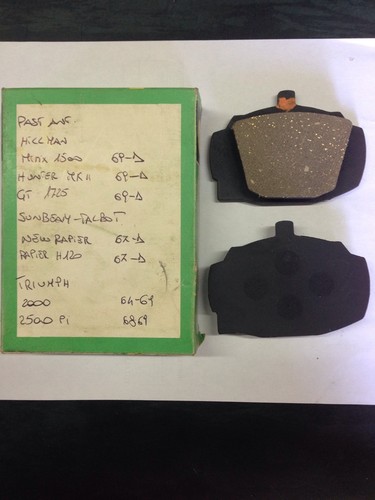 PAST ANT
HILLMAN
MINX 1500 69-Δ
HUNTER MK II 69-Δ
GT 1725 69-Δ
SUNBEAM-TALBOT
NEW RAPIER 67-Δ
RAPIER H120 67-Δ
TRIUMPH
2000 64-69
2500 PI 6869